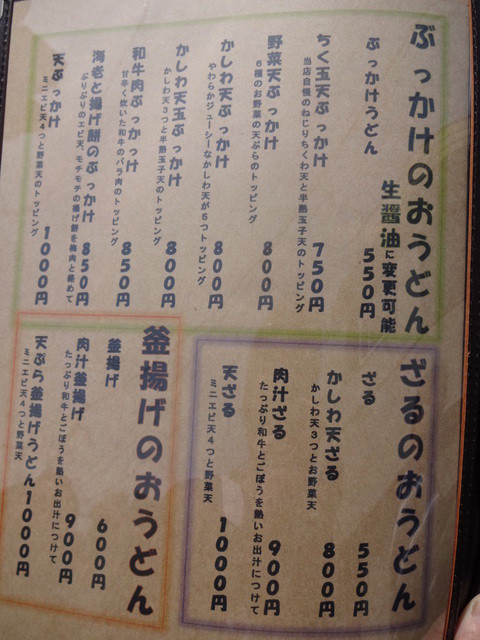 ぶっかけのおうどん
生醤油に変更可能
ぶっかけうどん 550円
ちく玉天ぶっかけ 750円
当店自慢のねじりちくわ天と半熟玉子天のトッピング
野菜天ぶっかけ 800円
6種のお野菜の天ぷらのトッピング
かしわ天ぶっかけ 800円
やわらかジューシーなかしわ天が5つトッピング
かしわ天玉ぶっかけ 800円
かしわ天3つと半熟玉子天のトッピング
和牛肉ぶっかっけ 850円
甘辛く炊いた和牛のバラ肉のトッピング
海老と揚げ餅のぶっかけ 850円
ぷりぷりのエビ天、モチモチの揚げ餅を梅肉と絡めて
天ぶっかけ 1000円
ミニエビ天4つと野菜天のトッピング
ざるのおうどん
ざる 550円
かしわ天ざる 800円
かしわ天3つとお野菜天
肉汁ざる 900円
たっぷり和牛とごぼうを熱いお出汁につけて
天ざる 1000円
ミニエビ天4つと野菜天
釜揚げのおうどん
釜揚げ 600円
肉汁釜揚げ 900円
たっぷり和牛とごぼうを熱いお出汁につけて
天ぷら釜揚げうどん 1000円
ミニエビ天4つと野菜天